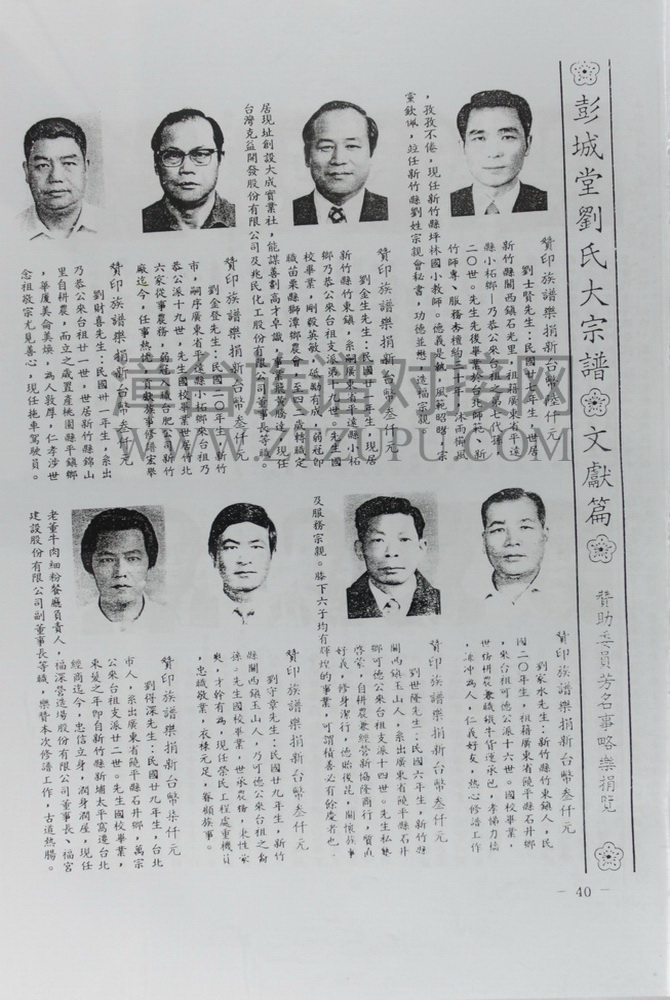 彭城堂劉氏大宗譜
文獻篇
贊助委員芳名事略樂捐覽
贊印族譜樂捐新台幣叁仟元
劉士賢先生：民國廿七年生，世居
新竹縣關西鎮石光里，祖籍廣東省平遠
縣小柘鄉—乃恭公來台祖之第七代孫，
二〇世。先生先後畢業於台北師範、新
竹師專、服務杏壇約二十年，沐雨櫛風
，孜孜不倦，現任新竹縣坪林國小教師。德義是執，風範昭昭，宗
黨欽佩，竝任新竹縣劉姓宗親會秘書，功德並懋，造福宗親。
贊印族譜樂捐新台幣叁仟元
劉金生先生：民國廿一年生，現居
新竹縣竹東鎮，系嗣廣東省平遠縣小柘
鄉乃恭公來台祖支派第十九世，先生國
校畢業，剛毅英敏，砥勵有成，弱冠即
職苗栗縣獅潭鄉農會，至四二歲轉職定
居現址創設大成實業社，能謀善劃高才卓識，事業無黃騰達，現任
台灣克益開發股份有限公司及兆民化工股份有限公司董事長等職。
贊印族譜樂捐新台幣叁仟元
劉金登先生：民國二〇年生，新竹
市，嗣序廣東省平遠縣小柘鄉來台祖乃
恭公派十九世，先生國校畢業世居竹北
六家從事農務，弱冠入議合肥公司新竹
廠迄今，任事熱德，貢獻族事修錦宏舉
贊印族譜樂捐新台幣叁仟元
劉財喜先生：民國卅一年生，系出
乃恭公來台祖廿一世，世居新竹縣錦山
里自耕農，而立之歲置產桃園縣平鎮鄉
，華厦美侖美煥，為人敦厚，仁孝涉世
念祖敬宗尤見善心，現任拖車駕駛員。
贊印族譜樂捐新台幣叁仟元
劉家水先生：新竹縣竹東鎮人，民
國二〇年生，祖籍廣東省饒平縣石井鄉
，來台祖可德公派十六世。國校畢業，
世務耕農兼職鐵牛貨運承包，孝悌力穡
，謙沖為人，仁義好友，熱心修譜工作
贊印族譜樂捐新台幣叁仟元
劉世隆先生：民國六年生，新竹縣
關西鎮玉山人，系出廣東省饒平縣石井
鄉可德公來台祖支派十四世。先生私塾
啓蒙，自耕農兼經營新協隆商行，質直
好義，修身潔行，德貽後昆，關懷族事
及服務宗親。膝下六子均有輝煌的事業，可謂積善必有餘慶者也。
贊印族譜樂捐新台幣叁仟元
劉守章先生：民國廿九年生，新竹
縣關西鎮玉山人，乃可德公來台祖之裔
孫。先生國校畢業，世承農務，秉性家
爽，才幹有為，現任榮民工程處重機員
，忠職敬業，衣祿元足，眷顧族事。
贊印族譜樂捐新台幣柒仟元
劉得深先生：民國廿九年生，台北
市人，系出廣東省饒平縣石井鄉，萬宗
公來台祖支派廿二世。先生國校畢業，
束髮之年即自新竹縣新埔太平窩遷台北
經商迄今，忠信立身，潤身潤屋，現任
老董牛肉細粉餐廳負責人，福深營造場股份有限公司董事長、福宮
建設股份有限公司副董事長等職，樂贊本次修譜工作，古道熱腸。
－40－
WWW.ZJZJPU.COM